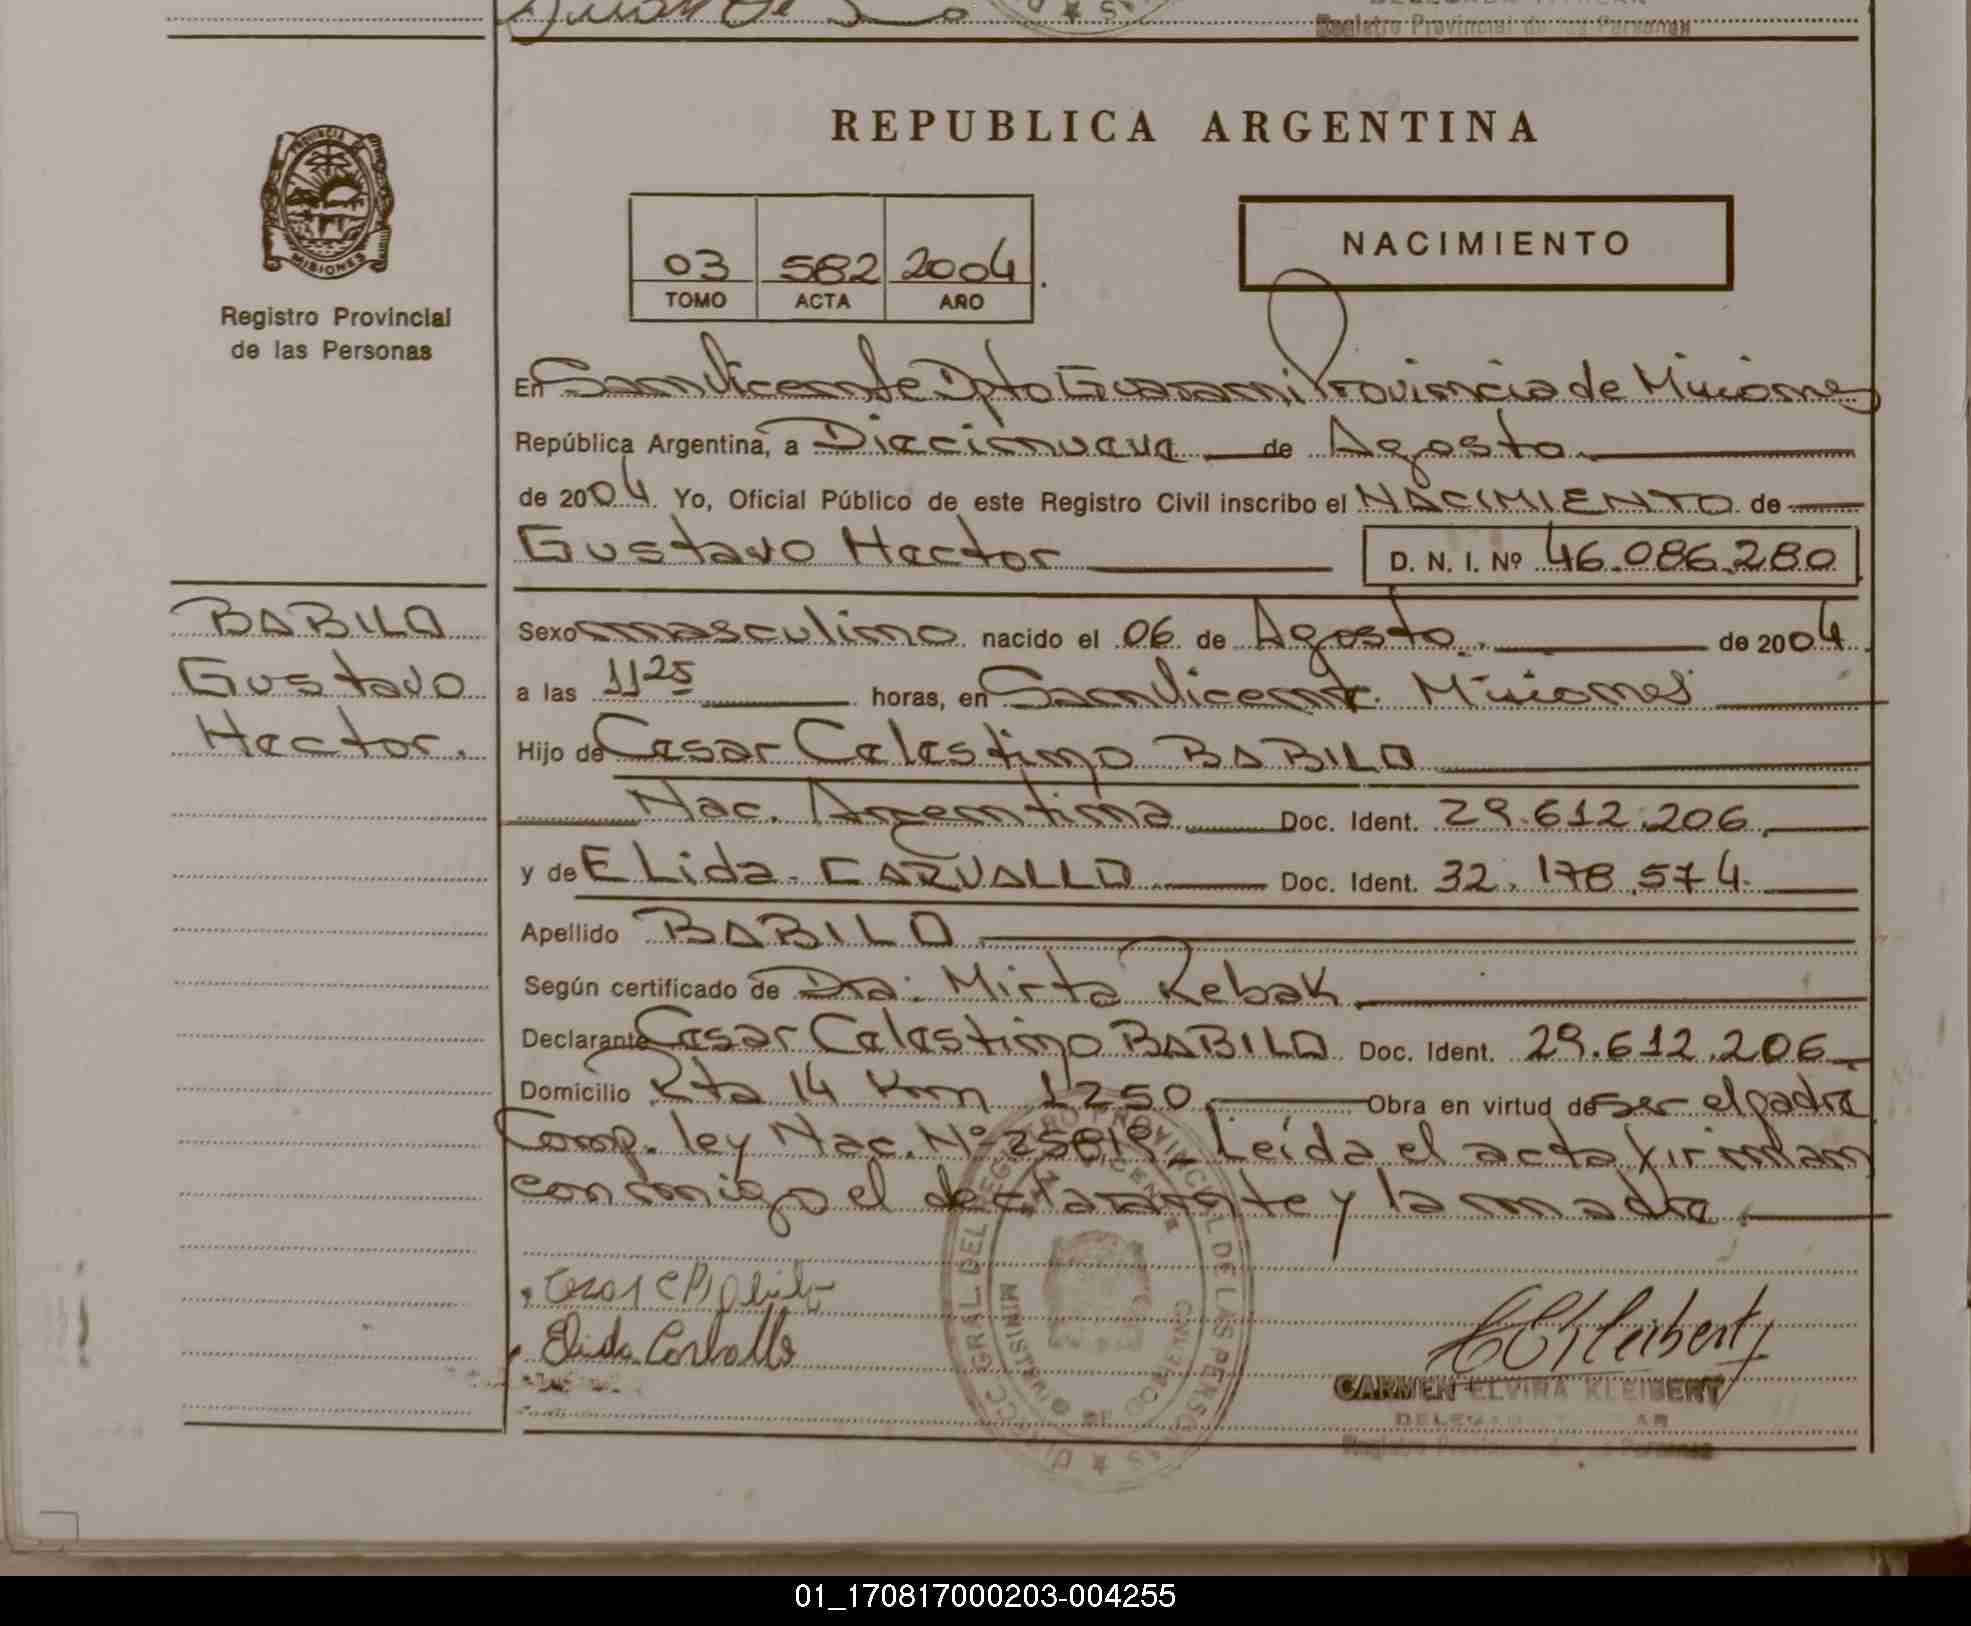 Registro Provincial de las Personas
REPUBLICA ARGENTINA
PROVINCIA DE
MISIONES
Registro Provincial
de las Personas
03 582 2004
TOMO ACTA AÑO
NACIMIENTO
En San Vicente Dpto Guarani Provincia de Misiones
República Argentina, a Diecinueve de Agosto
de 2004 Yo, Oficial Público de este Registro Civil inscribo el NACIMIENTO de
Gustavo Hector D. N. I. Nº 46.086.280
BABILO
Gustavo
Hector.
Sexo masculino nacido el 06 de Agosto de 2004
a las 1125 horas, en San Vicente. Misiones
Hijo de Cesar Celestino BABILO
Nac. Argentina Doc. Ident. 29.612.206
y de ELida CARVALLO Doc. Ident. 32.178.574.
Apellido BABILO
Según certificado de Dra. Mirta Rebak
Declarante Cesar Celestino BABILO Doc. Ident. 29.612.206
Domicilio Rta 14 Km 1250 Obra en virtud de ser el padre
Comp. ley Nac. Nº 25819_ Leída el acta firman
conmigo el declarante y la madre
Elida Carballo
CARMEN ELVIRA KLEIBERT
01_170817000203-004255